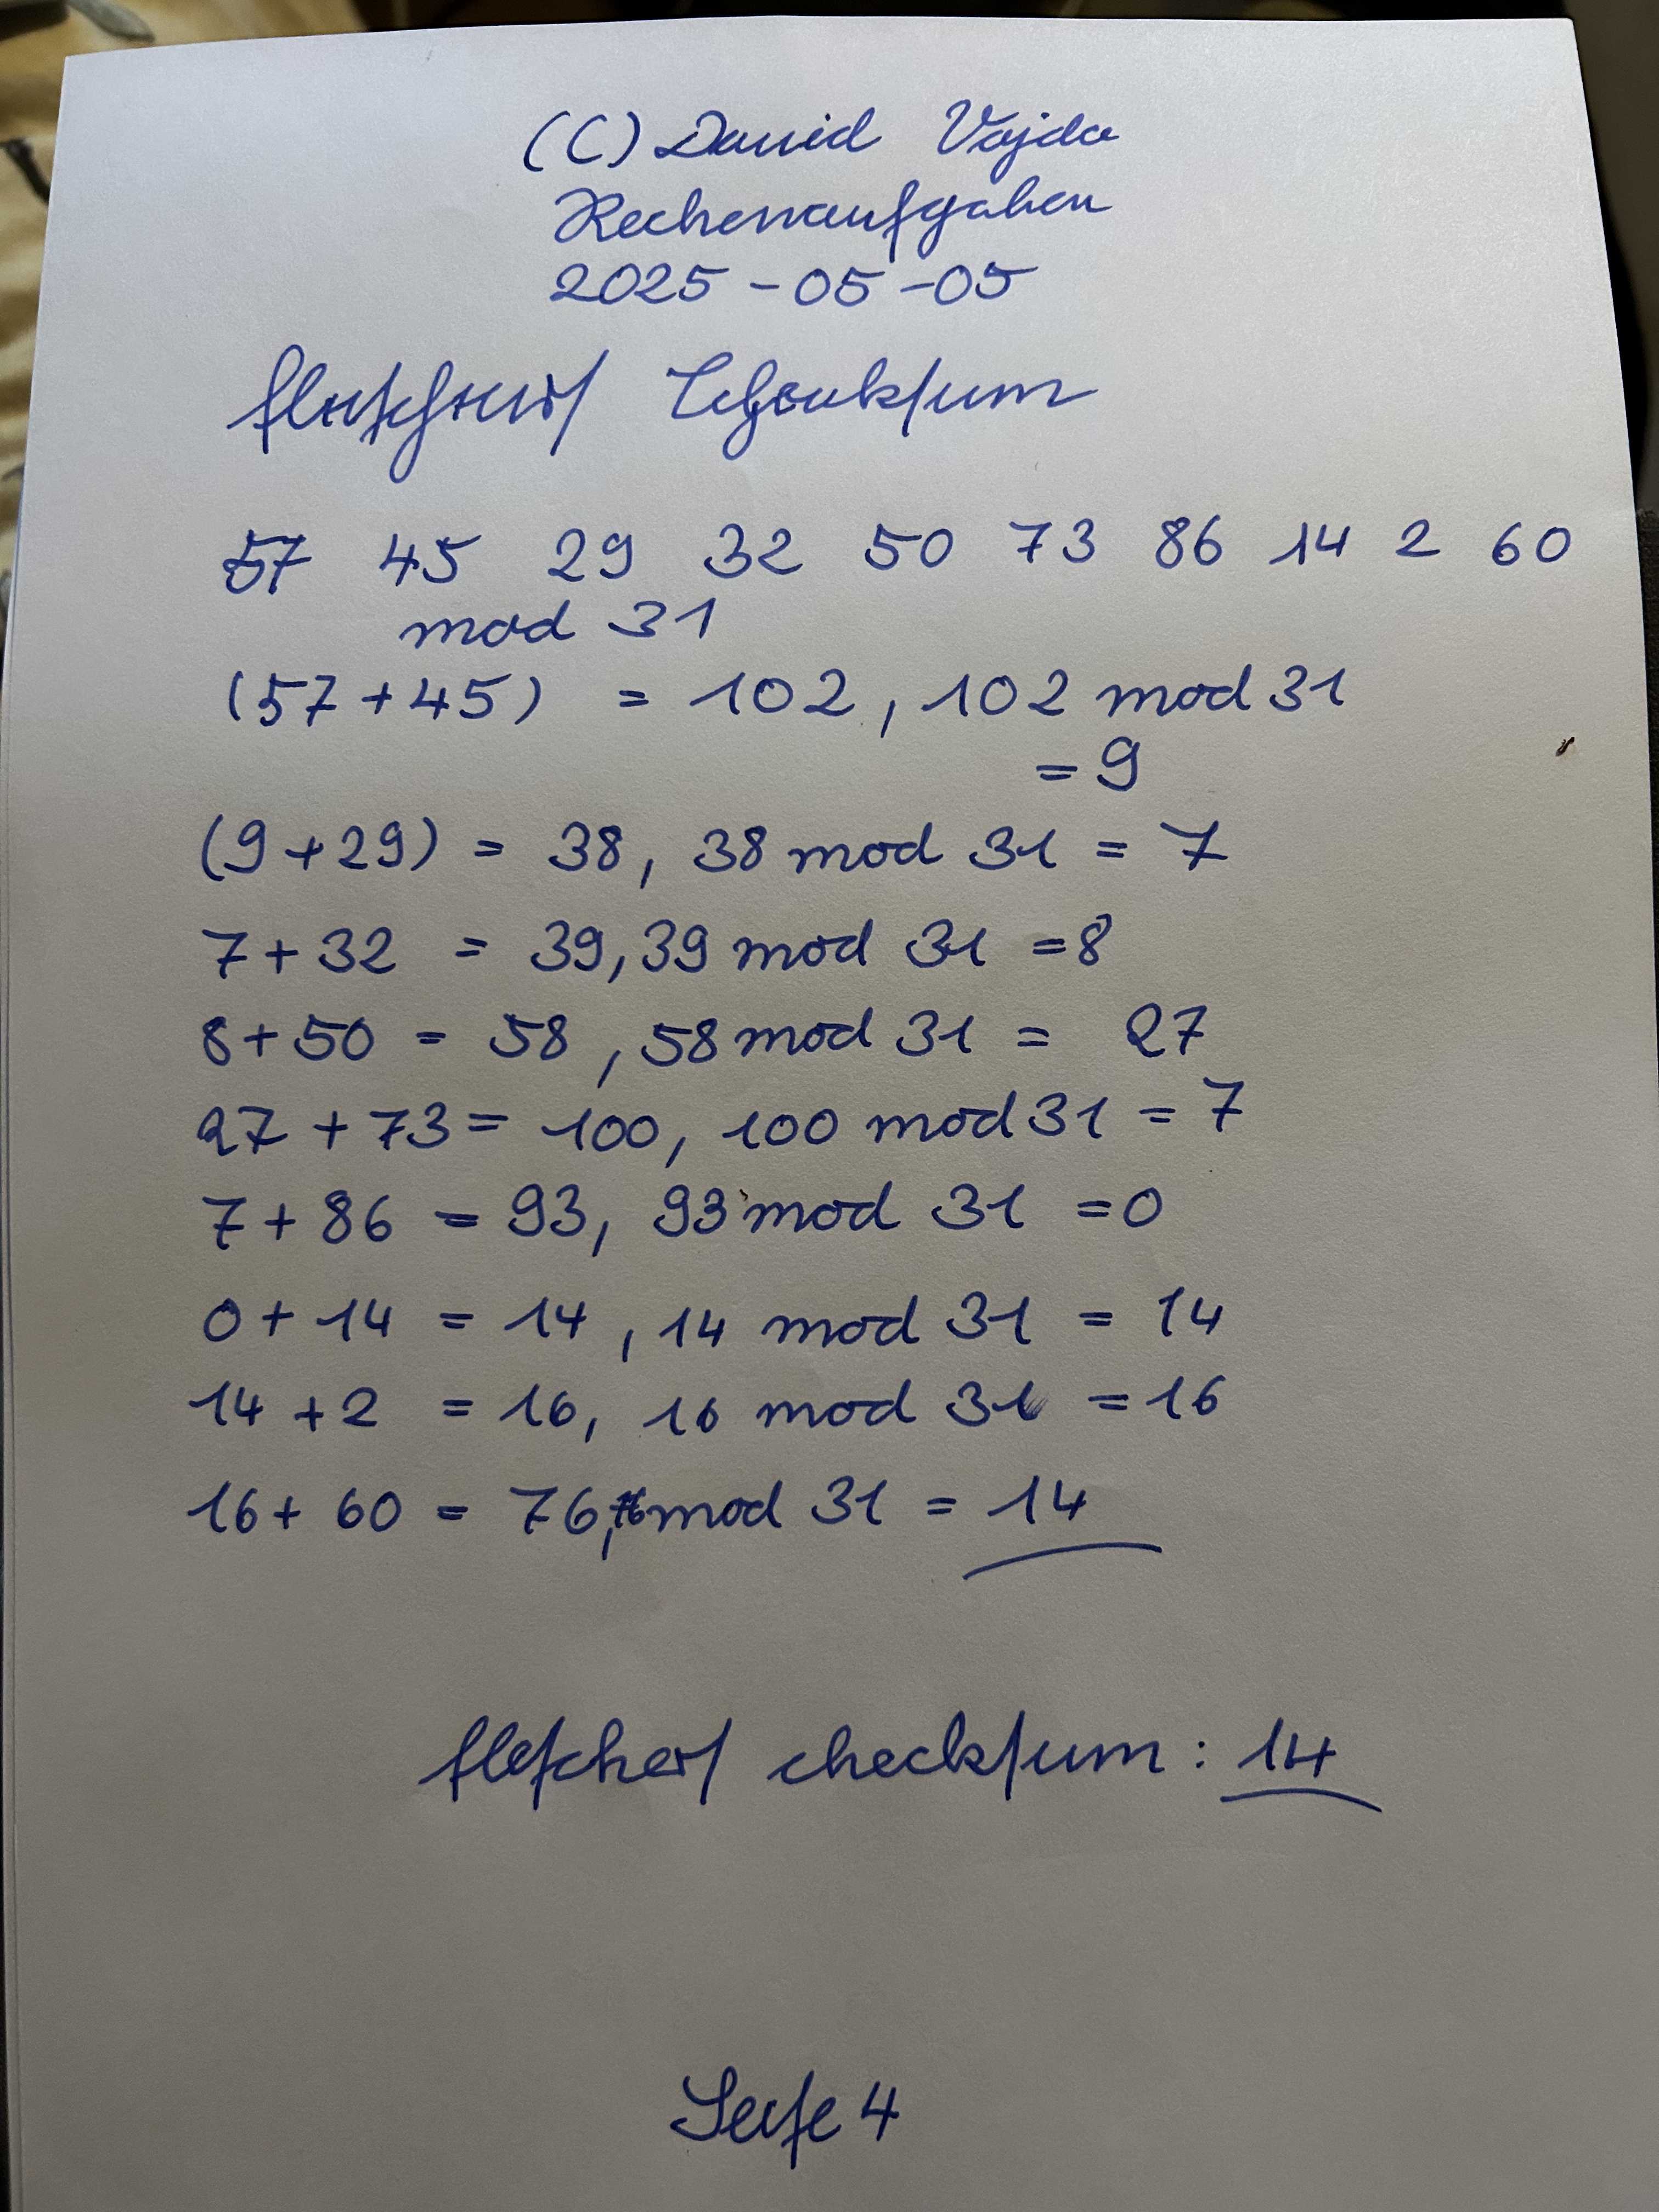 (C) David Vajda
Rechenaufgaben
2025-05-05
fletschers Checksum
57 45 29 32 50 73 86 14 2 60
mod 31
(57+45) = 102, 102 mod 31
= 9
(9+29) = 38, 38 mod 31 = 7
7+32 = 39, 39 mod 31 = 8
8+50 = 58, 58 mod 31 = 27
27+73 = 100, 100 mod 31 = 7
7+86 = 93, 93 mod 31 = 0
0+14 = 14, 14 mod 31 = 14
14+2 = 16, 16 mod 31 = 16
16+60 = 76, 76 mod 31 = 14
fletchers checksum: 14
Seite 4